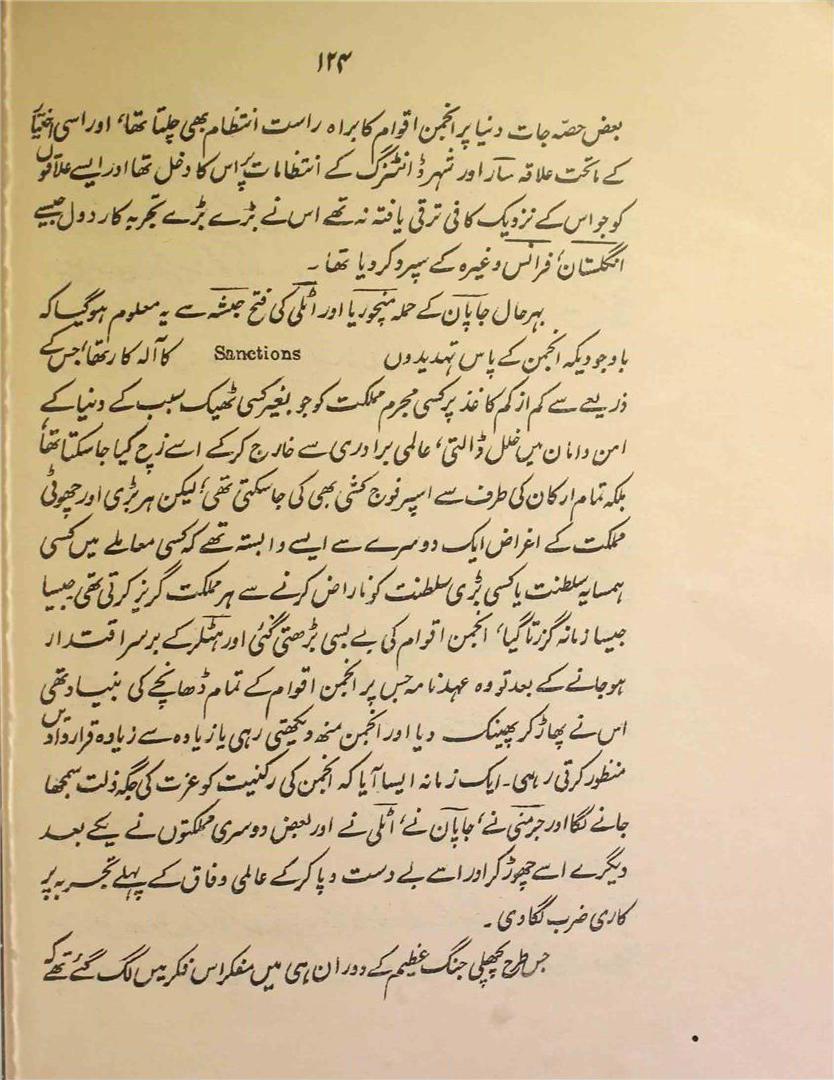 ۱۲۴
بعض حصّہ جات دنیا پر انجمن اقوام کا براہ راست انتظام بھی چلتا تھا، اور اسی اختیار
کے ماتحت علاقہ سار اور شہر ڈانٹزگ کے انتظامات پر اس کا دخل تھا اور ایسے علاقوں
کو جو اس کے نزدیک کافی ترقی یافتہ نہ تھے اس نے بڑے بڑے تجربہ کار دول جیسے
انگلستان، فرانس وغیرہ کے سپرد کر دیا تھا۔
بہر حال جاپان کے حملہ منچوریا اور اٹلی کی فتح حبشہ سے یہ معلوم ہو گیا کہ
باوجودیکہ انجمن کے پاس تہدیدوں Sanctions کا آلہ کار تھا، جس کے
ذریعے سے کم از کم کاغذ پر کسی مجرم مملکت کو جو بغیر کسی ٹھیک سبب کے دنیا کے
امن و امان میں خلل ڈالتی، عالمی برادری سے خارج کر کے اسے زچ کیا جا سکتا تھا،
بلکہ تمام ارکان کی طرف سے اسپر فوج کشی بھی کی جا سکتی تھی، لیکن ہر بڑی اور چھوٹی
مملکت کے اغراض ایک دوسرے سے ایسے وابستہ تھے کہ کسی معاملے میں کسی
ہمسایہ سلطنت یا کسی بڑی سلطنت کو ناراض کرنے سے ہر مملکت گریز کرتی تھی۔ جیسا
جیسا زمانہ گزرتا گیا، انجمن اقوام کی بے بسی بڑھتی گئی اور ہٹلر کے برسر اقتدار
ہو جانے کے بعد تو وہ عہدنامہ جس پر انجمن اقوام کے تمام ڈھانچے کی بنیاد تھی
اس نے پھاڑ کر پھینک دیا اور انجمن منھ دیکھتی رہی یا زیادہ سے زیادہ قراردادیں
منظور کرتی رہی۔ ایک زمانہ ایسا آیا کہ انجمن کی رکنیت کو عزت کی جگہ ذلت سمجھا
جانے لگا اور جرمنی نے، جاپان نے، اٹلی نے اور بعض دوسری مملکتوں نے یکے بعد
دیگرے اسے چھوڑ کر اور اسے بے دست و پا کر کے عالمی وفاق کے پہلے تجربہ پر
کاری ضرب لگا دی۔
جس طرح پچھلی جنگ عظیم کے دوران ہی میں مفکر اس فکر میں لگ گئے تھے کہ